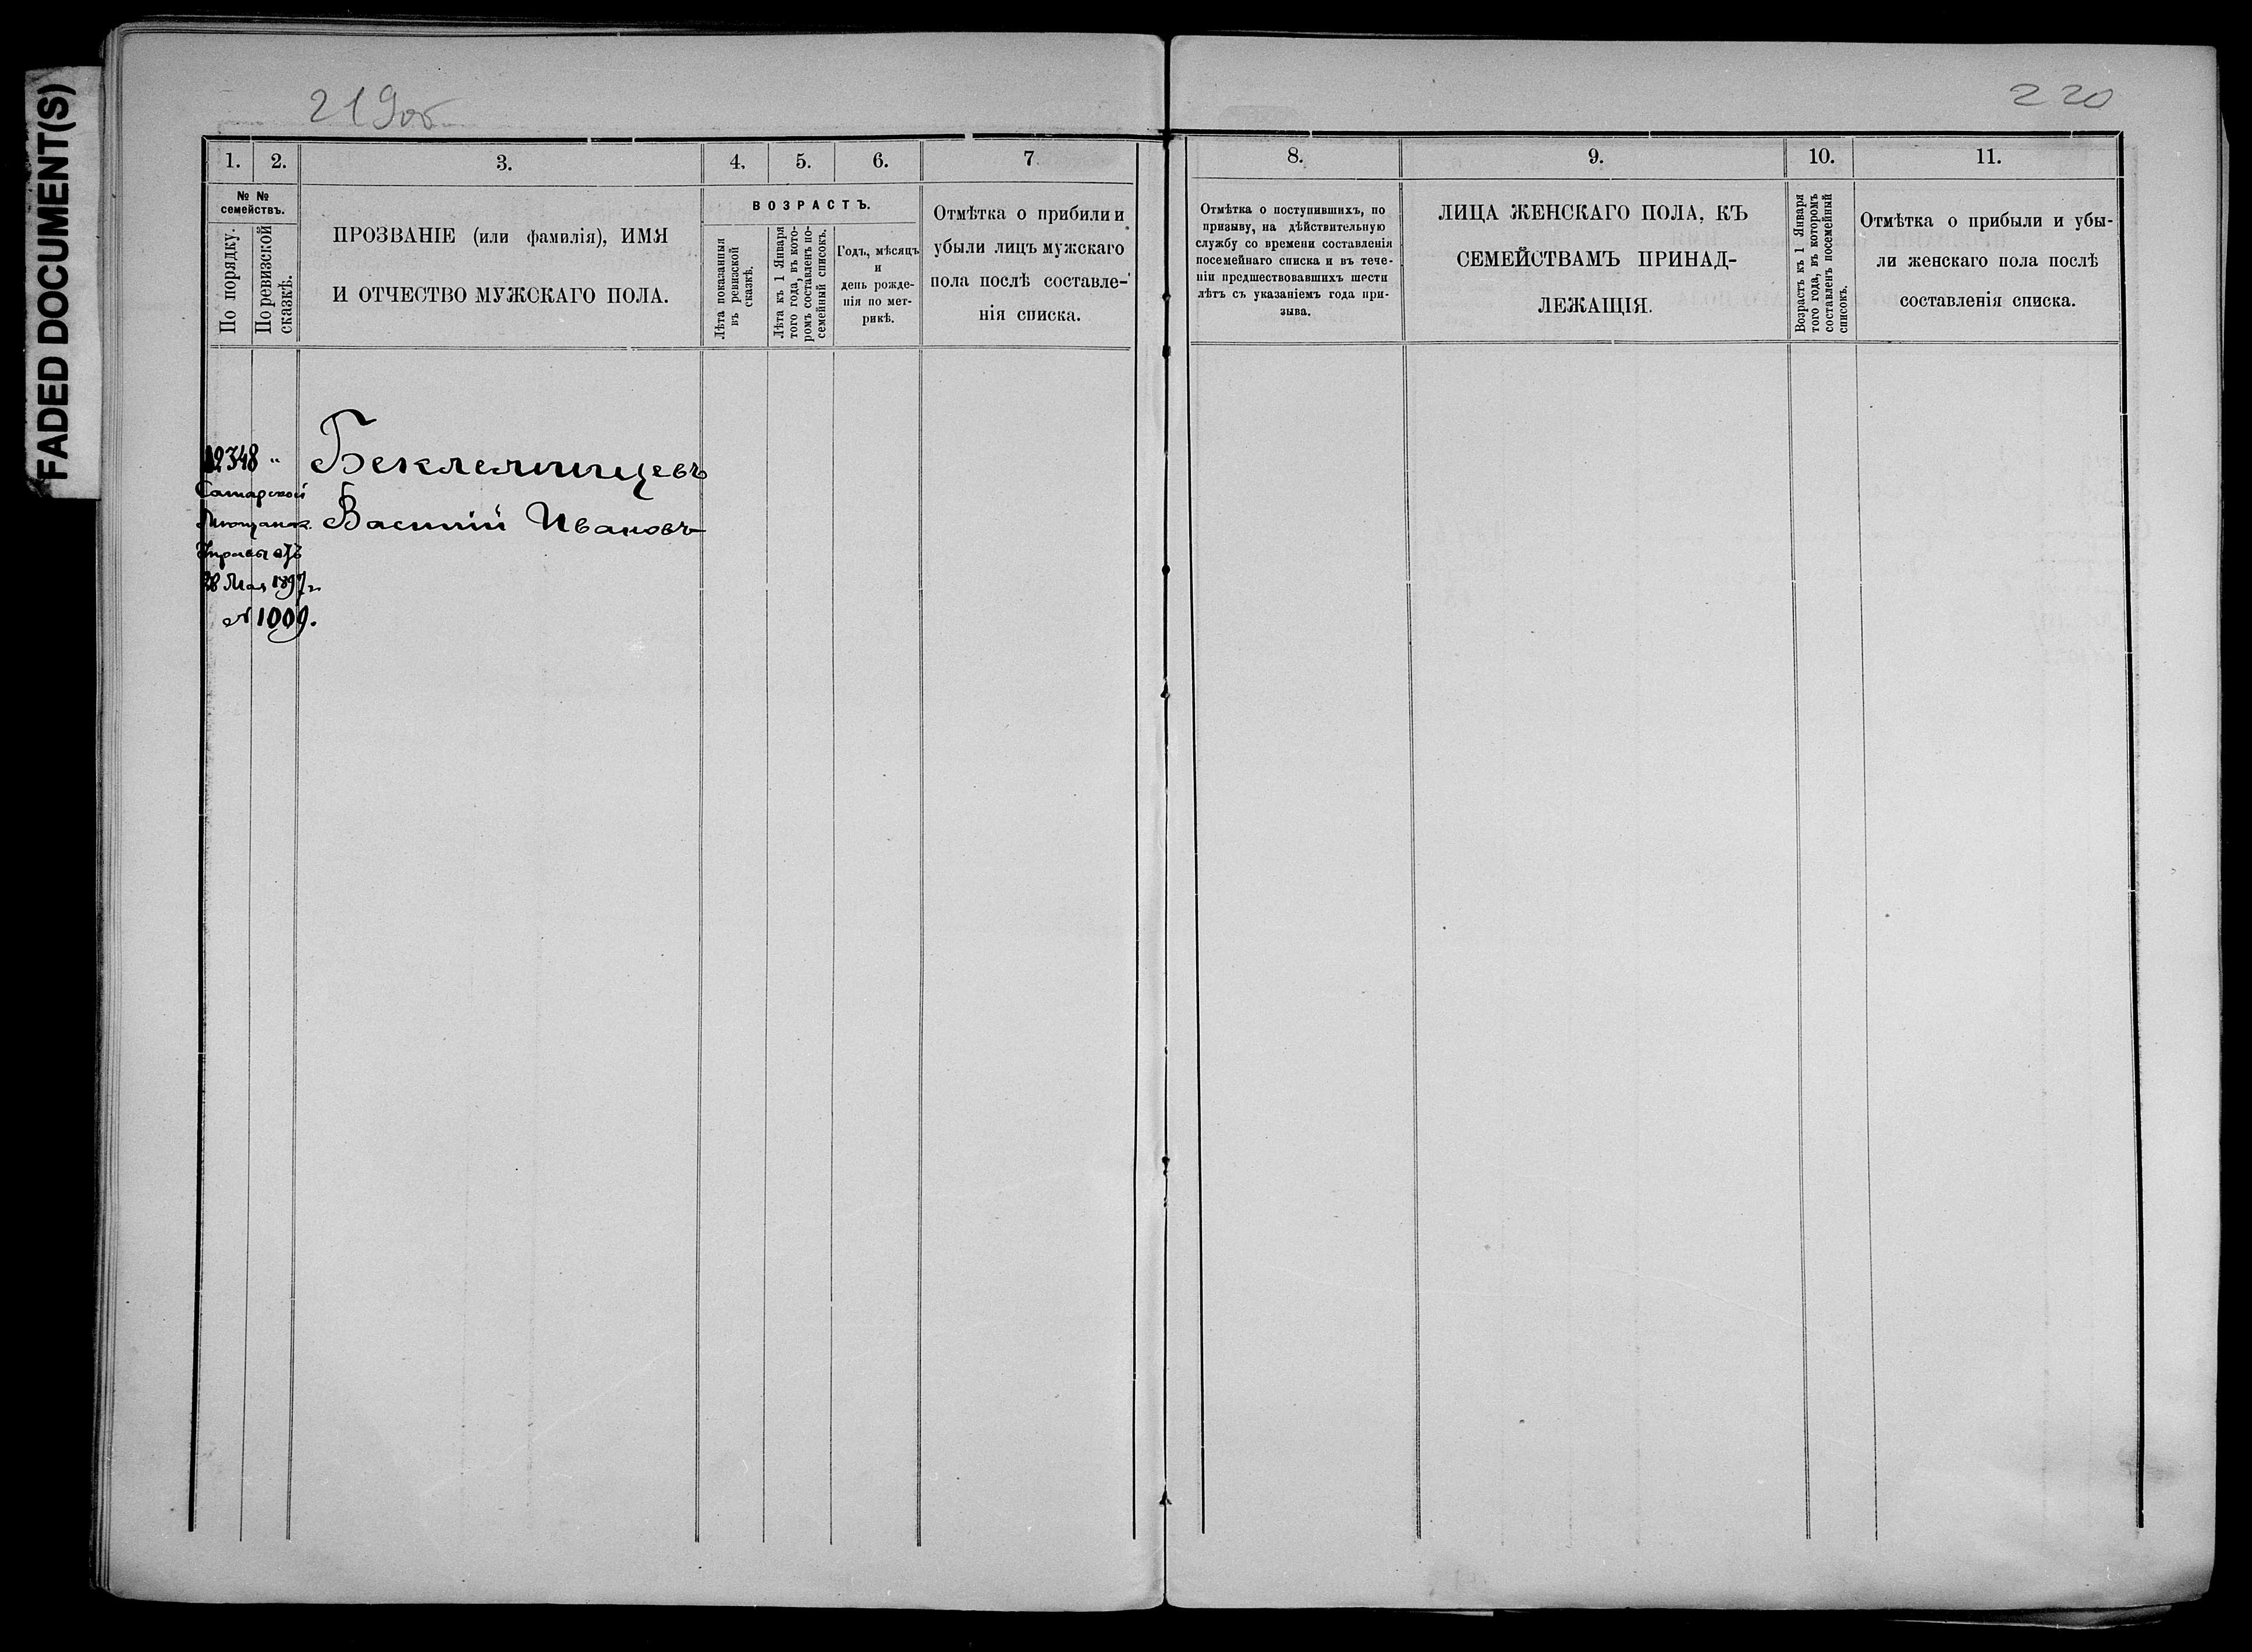 FADED DOCUMENT(S)
219об
220
1. 2. 3. 4. 5. 6. 7.
№ № семействъ.
По порядку.
По ревизской сказкѣ.
ПРОЗВАНІЕ (или фамилія), ИМЯ
И ОТЧЕСТВО МУЖСКАГО ПОЛА.
ВОЗРАСТЪ.
Лѣта показанныя
въ ревизской
сказкѣ.
Лѣта къ 1 Января
того года, въ кото-
ромъ составленъ по-
семейный списокъ.
Годъ, мѣсяцъ
и
день рожде-
нія по мет-
рикѣ.
Отмѣтка о прибыли и
убыли лицъ мужскаго
пола послѣ составле-
нія списка.
8. 9. 10. 11.
Отмѣтка о поступившихъ, по
призыву, на дѣйствительную
службу со времени составленія
посемейнаго списка и въ тече-
ніи предшествовавшихъ шести
лѣтъ съ указаніемъ года при-
зыва.
ЛИЦА ЖЕНСКАГО ПОЛА, КЪ
СЕМЕЙСТВАМЪ ПРИНАД-
ЛЕЖАЩІЯ.
Возрастъ къ 1 Января
того года, въ которомъ
составленъ посемейный
списокъ.
Отмѣтка о прибыли и убы-
ли женскаго пола послѣ
составленія списка.
12348 " Беклемищевъ
Самарской
Мѣщанск. Василій Ивановъ
Управы отъ
28 Мая 1897 г.
№ 1009.